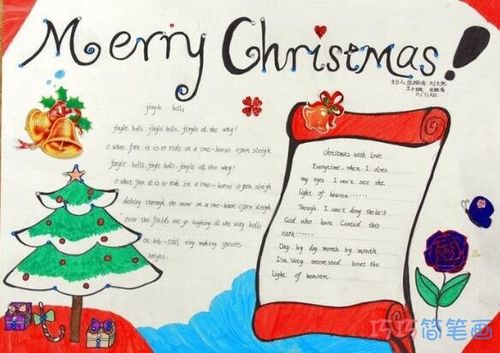 Merry Christmas!
jingle bells
jingle bells, jingle bells, jingle all the way!
O what fun it is to ride in a one-horse open sleigh
jingle bells, jingle bells, jingle all the way!
O what fun it is to ride in a one-horse open sleigh
dashing through the snow in a one-horse open sleigh
over the fields we go laughing all the way bells
on bob-tail ring making spirits
bright.
Christmas with love
Everytime, when I close
my eyes I won't see the
light of heaven......
Though I won't deny the
God who have Coused this
earth......
Day by day month by month
I've Very interessed binet the
light of heaven.
巧巧简笔画